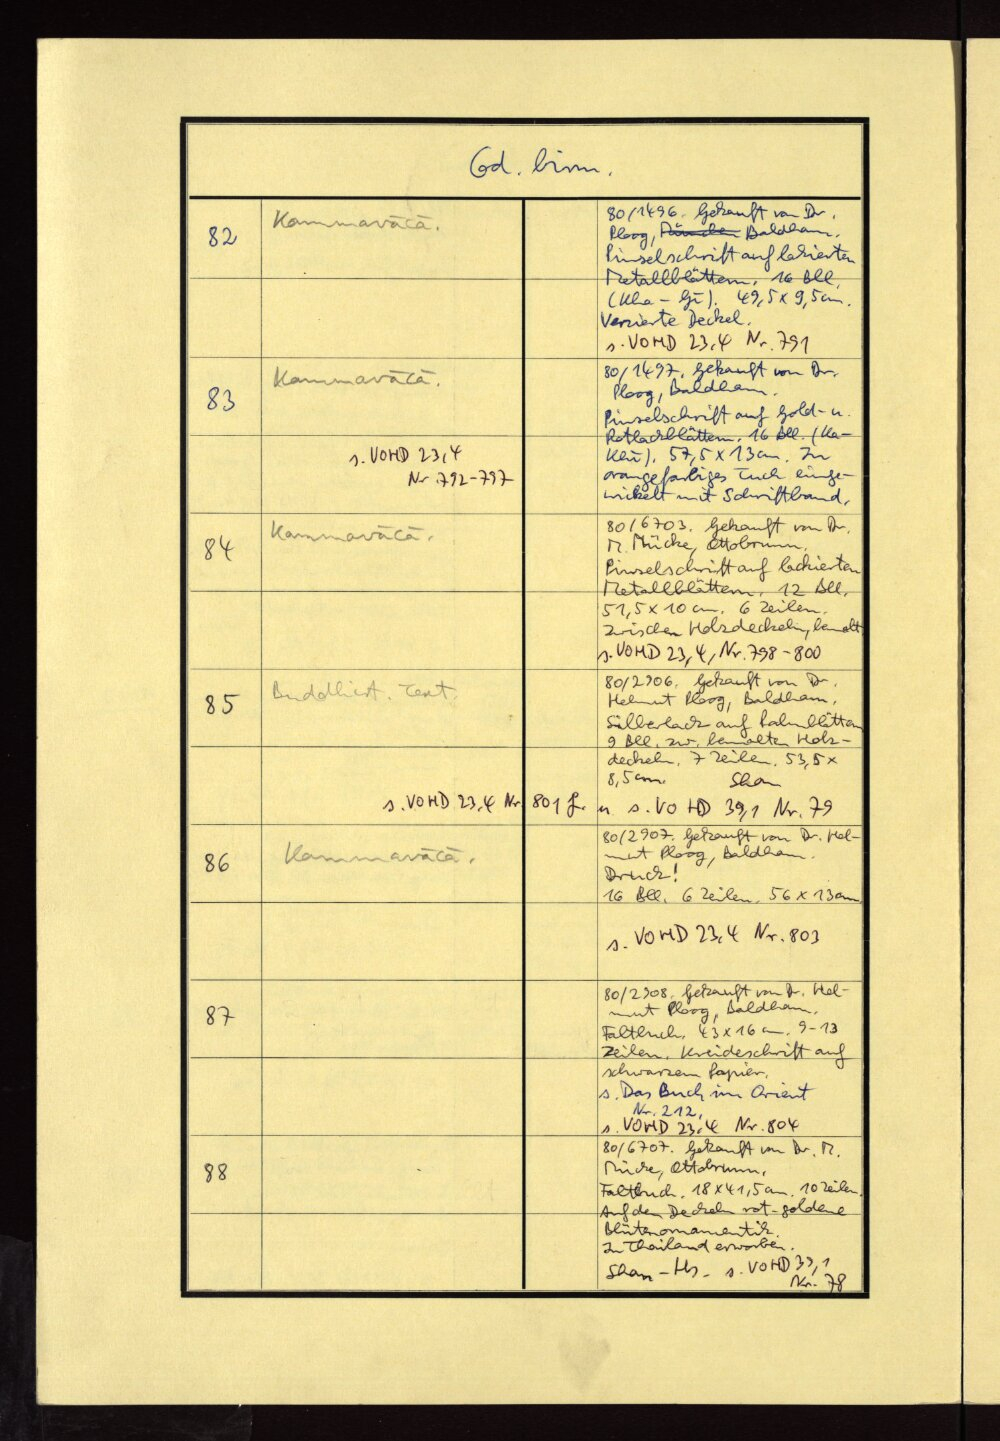 Cod. birm.
82
Kammavācā.
80/1496. Gekauft von Dr.
Ploog, München Baldham.
Pinselschrift auf lackierten
Metallblättern. 16 Bll.
(Kha – Gī). 49,5 x 9,5 cm.
Verzierte Deckel.
s. VOHD 23,4 Nr. 791
83
Kammavācā.
s. VOHD 23,4
Nr. 792-797
80/1497. Gekauft von Dr.
Ploog, Baldham.
Pinselschrift auf Gold- u.
Rotlackblättern. 16 Bll. (Ka–
Khī). 57,5 x 13 cm. In
orangefarbiges Tuch einge-
wickelt mit Schriftband.
84
Kammavācā.
80/6703. Gekauft von Dr.
M. Mücke, Ottobrunn.
Pinselschrift auf lackierten
Metallblättern. 12 Bll.
51,5 x 10 cm. 6 Zeilen.
Zwischen Holzdeckeln, bemalt
s. VOHD 23,4, Nr. 798-800
85
Buddhist. Text.
80/2906. Gekauft von Dr.
Helmut Ploog, Baldham.
Silberlack auf Palmblättern
9 Bll. zw. bemalten Holz-
deckeln. 7 Zeilen. 53,5 x
8,5 cm. Shan
s. VOHD 23,4 Nr. 801 f. u. s. VOHD 39,1 Nr. 79
86
Kammavācā.
80/2907. Gekauft von Dr. Hel-
mut Ploog, Baldham.
Druck!
16 Bll. 6 Zeilen. 56 x 13 cm
s. VOHD 23,4 Nr. 803
87
80/2908. Gekauft von Dr. Hel-
mut Ploog, Baldham.
Faltbuch. 43 x 16 cm. 9-13
Zeilen. Kreideschrift auf
schwarzem Papier.
s. Das Buch im Orient
Nr. 212.
s. VOHD 23,4 Nr. 804
88
80/6707. Gekauft von Dr. M.
Mücke, Ottobrunn.
Faltbuch. 18 x 41,5 cm. 10 Zeilen.
Auf den Deckeln rot-goldene
Blütenornamentik.
In Thailand erworben.
Shan – Hs. s. VOHD 39,1
Nr. 78